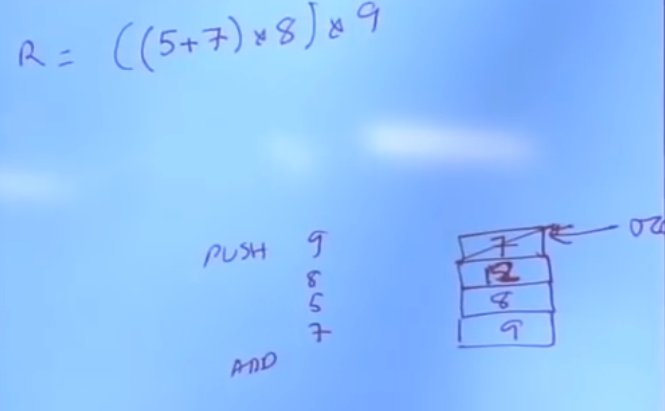 R = ((5+7)*8)*9
PUSH 9
8
5
7
ADD
7
12
8
9